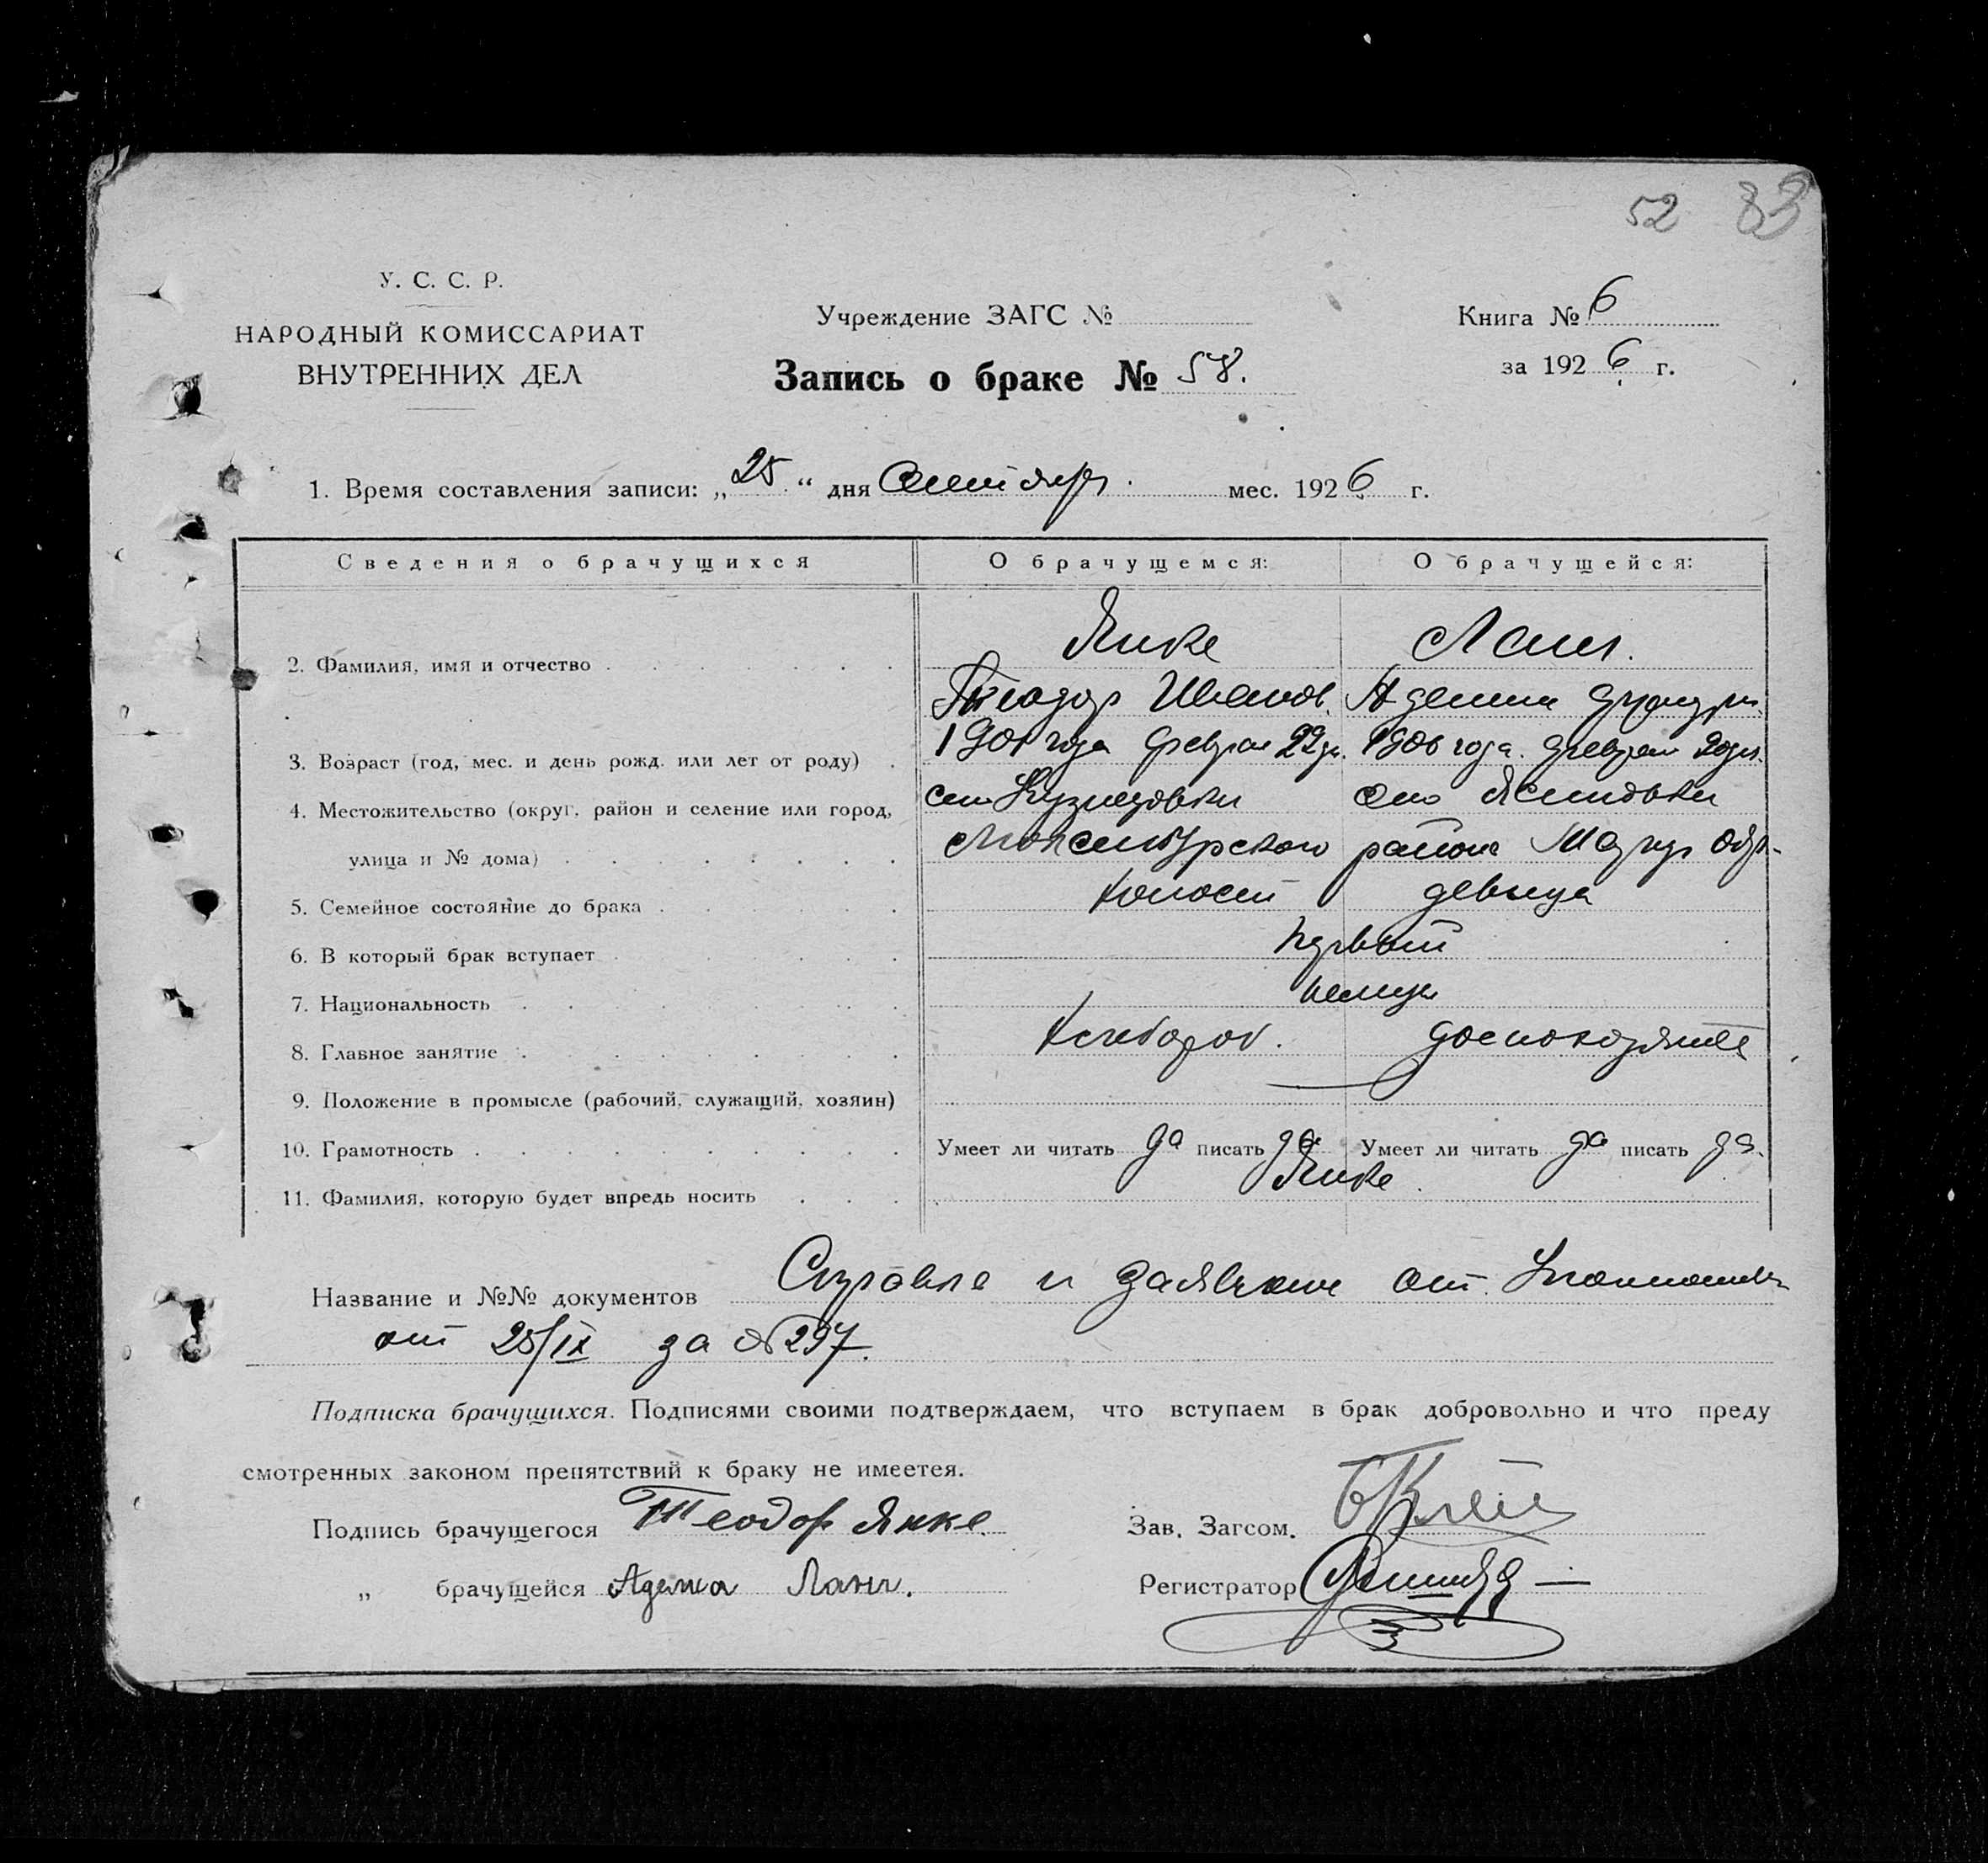 52 83
У. С. С. Р.
НАРОДНЫЙ КОМИССАРИАТ
ВНУТРЕННИХ ДЕЛ
Учреждение ЗАГС №
Запись о браке № 58.
Книга № 6
за 1926 г.
1. Время составления записи: „25“ дня Сентября мес. 1926 г.
Сведения о брачущихся О брачущемся: О брачущейся:
2. Фамилия, имя и отчество Янке Ланг.
Теодор Иванов.
3. Возраст (год, мес. и день рожд. или лет от роду) 1901 года февраля 22 дн. 1906 года февраля
4. Местожительство (округ, район и селение или город, село Кузнецовки село Ясиновки
улица и № дома) Люксембургского района Мариуп окр.
5. Семейное состояние до брака холост девица
6. В который брак вступает первый
7. Национальность немцы
8. Главное занятие хлебороб. домохозяйка
9. Положение в промысле (рабочий, служащий, хозяин)
10. Грамотность Умеет ли читать да писать да Умеет ли читать да писать да.
11. Фамилия, которую будет впредь носить Янке.
Название и №№ документов Справка и заявление от
от 25/IX за №297.
Подписка брачущихся. Подписями своими подтверждаем, что вступаем в брак добровольно и что преду
смотренных законом препятствий к браку не имеется.
Подпись брачущегося Теодор Янке.
„ брачущейся Аделина Ланг.
Зав. Загсом.
Регистратор